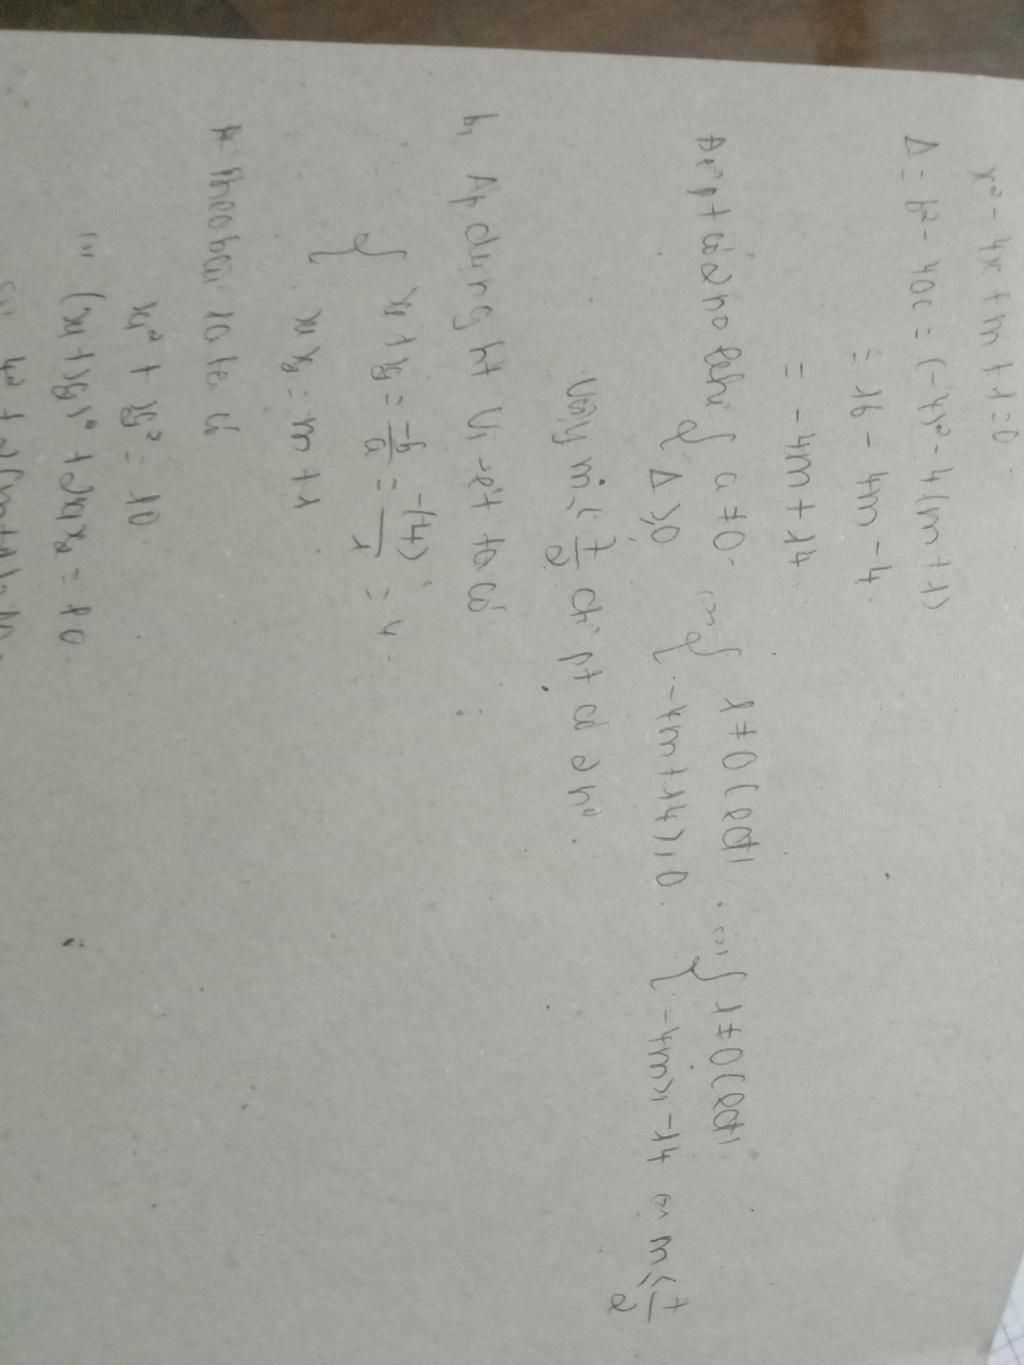 x² - 4x + m + 1 = 0
Δ = b² - 4ac = (-4)² - 4(m + 1)
= 16 - 4m - 4
= -4m + 14
Để pt có 2 no khi { a ≠ 0 <=> { 1 ≠ 0 (lđ) <=> { 1 ≠ 0 (lđ)
Δ ≥ 0 -4m + 14 ≥ 0 -4m ≥ -14 <=> m ≤ 7/2
Vậy m ≤ 7/2 thì pt có 2 no.
b, Áp dụng ht Vi-ét ta có
{ x1 + x2 = -b/a = -(-4)/1 = 4
x1 x2 = m + 1
Theo bài ra ta có
x1² + x2² = 10
<=> (x1 + x2)² + 2x1x2 = 10
<=> 4² + 2(m+1) = 10